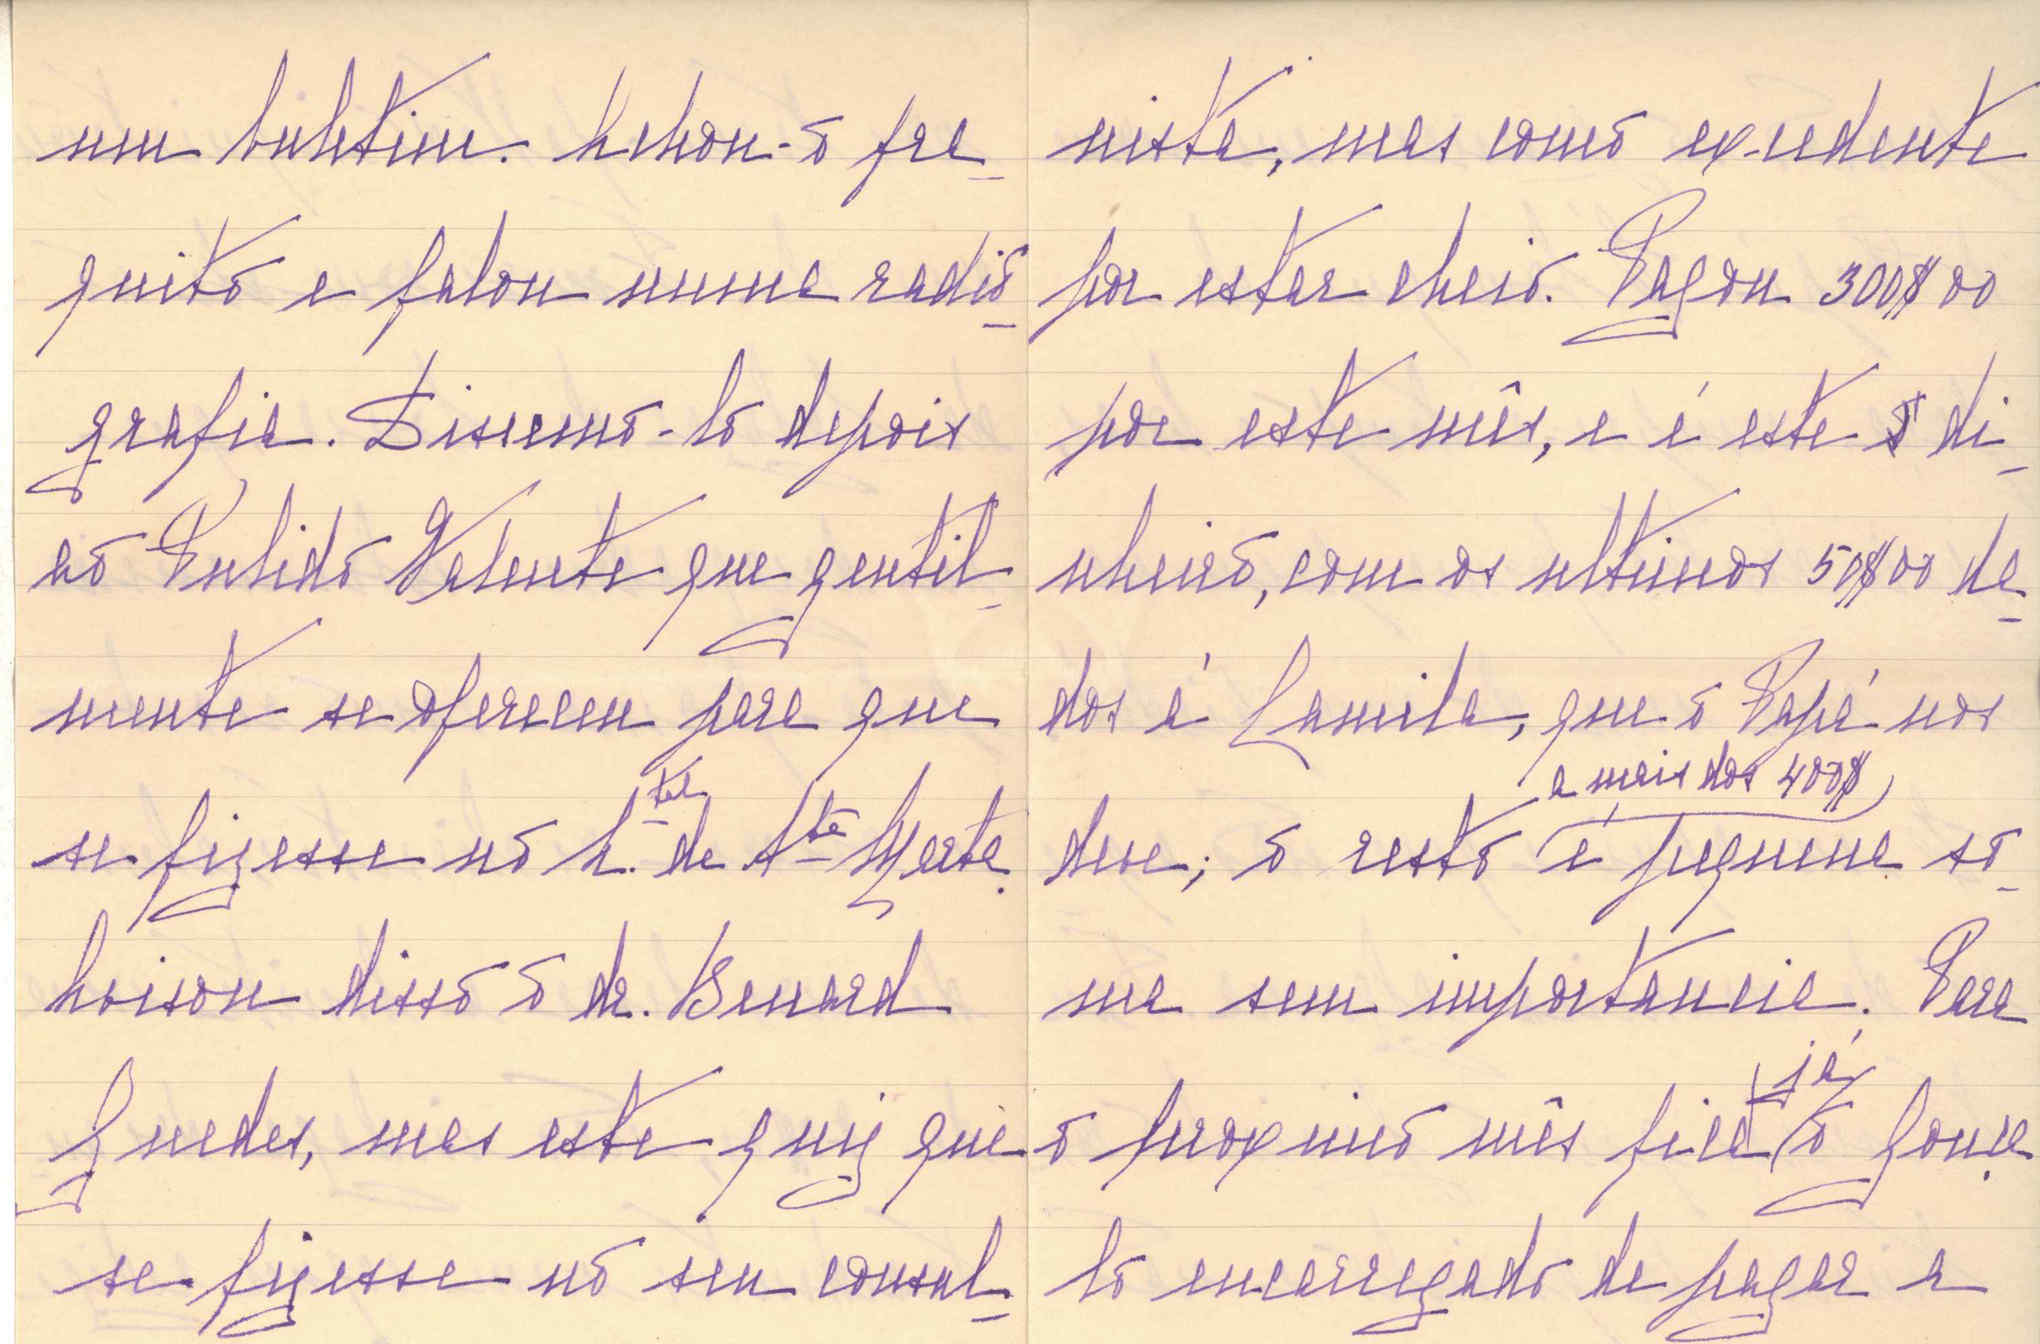 um buletim. Achou-o fra-
quito e falou numa radio-
grafia. Dissemo-lo depois
ao Pulido Valente que gentil-
mente se ofereceu para que
se fizesse no h.tal de Sta Marta.
Avisou disso o dr. Benard
Guedes, mas este quiz que
se fizesse no seu consul-
nista, mas como excedente
por estar cheio. Pagou 300$00
por este mês, e é este o di-
nheiro, com os ultimos 50$00 da-
dos á Camila, que o Papá nos
deve; o resto (a mais dos 400$) é pequena so-
ma sem importancia. Para
o proximo mês fica já o Gonça-
lo encarregado de pagar a